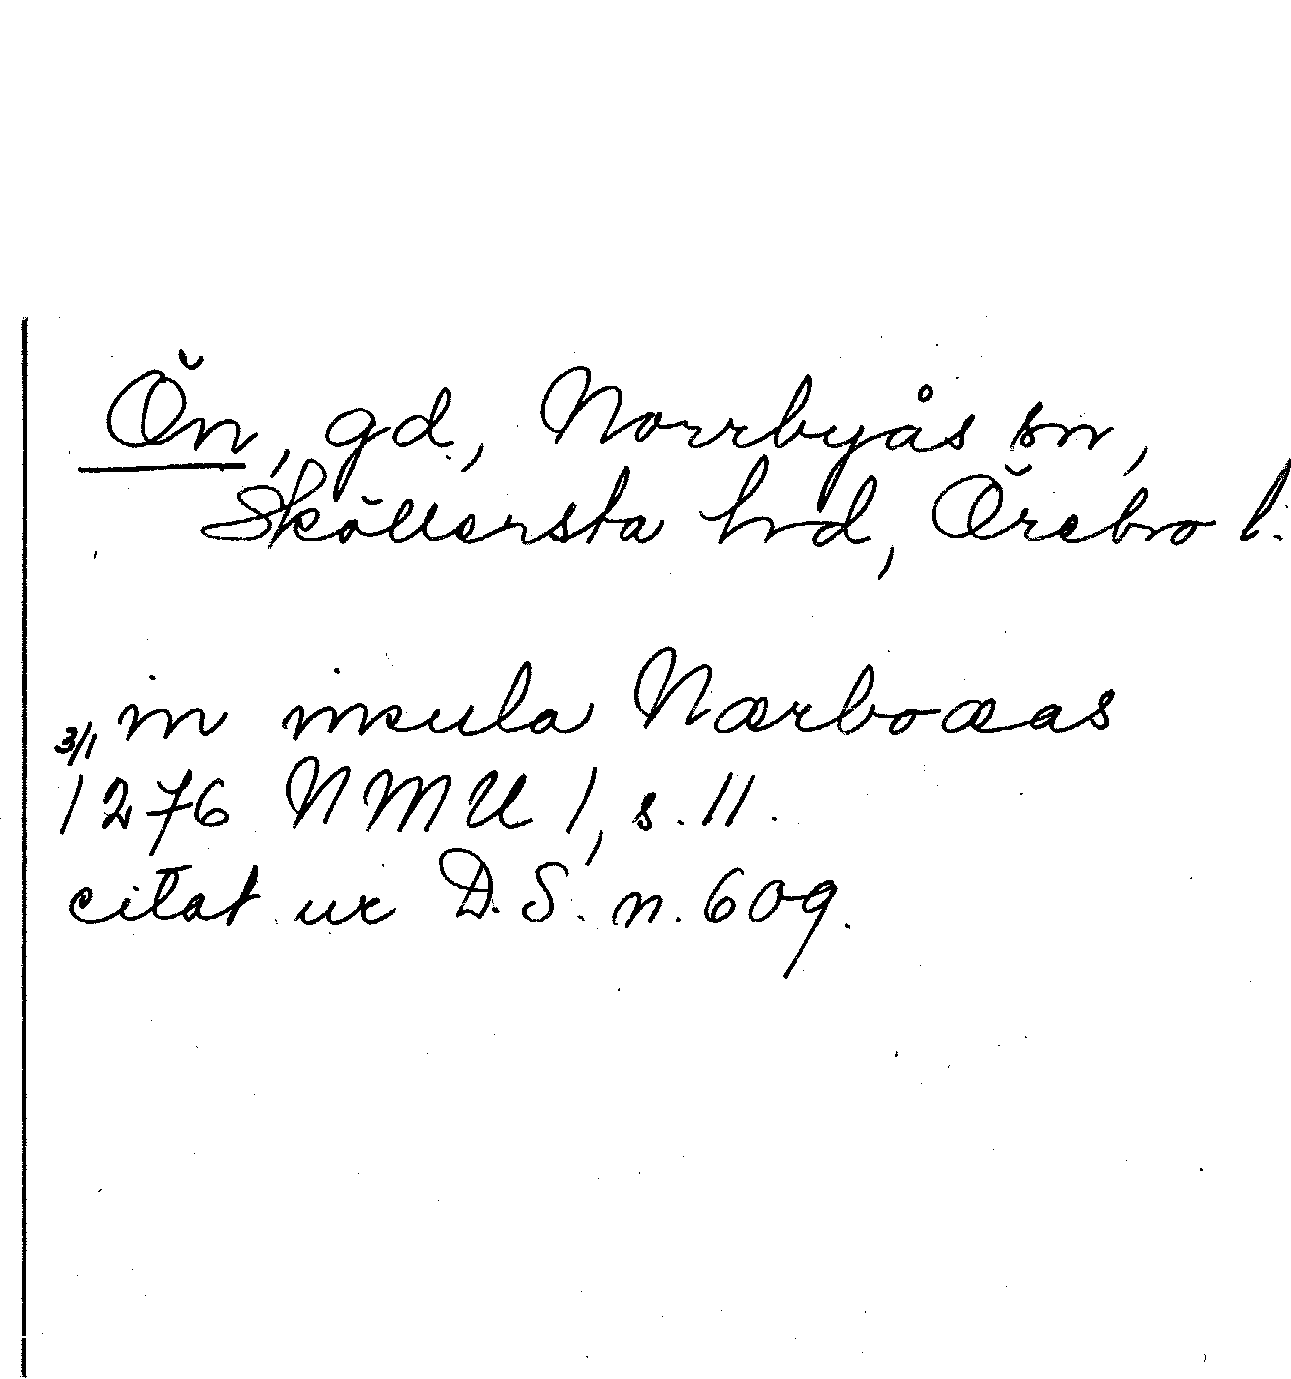 Ön, gd., Norrbyås sn,
Sköllersta hrd, Örebro l.
in insula Nærboæas
3/1 1276 NMU 1, s. 11.
citat ur D.S. n. 609.